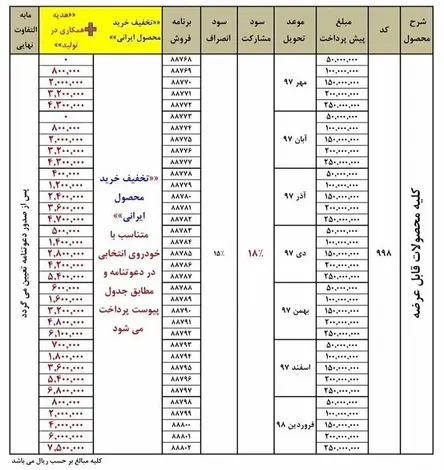 شرح محصول کد مبلغ پیش پرداخت موعد تحویل سود مشارکت سود انصراف برنامه فروش ««تخفیف خرید محصول ایرانی»» ««هدیه همکاری در تولید»» مابه التفاوت نهایی
کلیه محصولات قابل عرضه
۹۹۸
۱۸٪
۱۵٪
««تخفیف خرید
محصول
ایرانی»»
متناسب با
خودروی انتخابی
در دعوتنامه و
مطابق جدول
پیوست پرداخت
می شود
پس از صدور دعوتنامه تعیین می گردد
مهر ۹۷
۵۰،۰۰۰،۰۰۰ ۸۸۷۶۸ ۰
۱۰۰،۰۰۰،۰۰۰ ۸۸۷۶۹ ۸۰۰،۰۰۰
۱۵۰،۰۰۰،۰۰۰ ۸۸۷۷۰ ۲،۰۰۰،۰۰۰
۲۰۰،۰۰۰،۰۰۰ ۸۸۷۷۱ ۳،۲۰۰،۰۰۰
۲۵۰،۰۰۰،۰۰۰ ۸۸۷۷۲ ۴،۳۰۰،۰۰۰
آبان ۹۷
۵۰،۰۰۰،۰۰۰ ۸۸۷۷۳ ۰
۱۰۰،۰۰۰،۰۰۰ ۸۸۷۷۴ ۸۰۰،۰۰۰
۱۵۰،۰۰۰،۰۰۰ ۸۸۷۷۵ ۲،۰۰۰،۰۰۰
۲۰۰،۰۰۰،۰۰۰ ۸۸۷۷۶ ۳،۲۰۰،۰۰۰
۲۵۰،۰۰۰،۰۰۰ ۸۸۷۷۷ ۴،۳۰۰،۰۰۰
آذر ۹۷
۵۰،۰۰۰،۰۰۰ ۸۸۷۷۸ ۴۰۰،۰۰۰
۱۰۰،۰۰۰،۰۰۰ ۸۸۷۷۹ ۱،۲۰۰،۰۰۰
۱۵۰،۰۰۰،۰۰۰ ۸۸۷۸۰ ۲،۴۰۰،۰۰۰
۲۰۰،۰۰۰،۰۰۰ ۸۸۷۸۱ ۳،۶۰۰،۰۰۰
۲۵۰،۰۰۰،۰۰۰ ۸۸۷۸۲ ۴،۷۰۰،۰۰۰
دی ۹۷
۵۰،۰۰۰،۰۰۰ ۸۸۷۸۳ ۵۰۰،۰۰۰
۱۰۰،۰۰۰،۰۰۰ ۸۸۷۸۴ ۱،۴۰۰،۰۰۰
۱۵۰،۰۰۰،۰۰۰ ۸۸۷۸۵ ۲،۸۰۰،۰۰۰
۲۰۰،۰۰۰،۰۰۰ ۸۸۷۸۶ ۴،۲۰۰،۰۰۰
۲۵۰،۰۰۰،۰۰۰ ۸۸۷۸۷ ۵،۴۰۰،۰۰۰
بهمن ۹۷
۵۰،۰۰۰،۰۰۰ ۸۸۷۸۸ ۶۰۰،۰۰۰
۱۰۰،۰۰۰،۰۰۰ ۸۸۷۸۹ ۱،۶۰۰،۰۰۰
۱۵۰،۰۰۰،۰۰۰ ۸۸۷۹۰ ۳،۲۰۰،۰۰۰
۲۰۰،۰۰۰،۰۰۰ ۸۸۷۹۱ ۴،۸۰۰،۰۰۰
۲۵۰،۰۰۰،۰۰۰ ۸۸۷۹۲ ۶،۱۰۰،۰۰۰
اسفند ۹۷
۵۰،۰۰۰،۰۰۰ ۸۸۷۹۳ ۷۰۰،۰۰۰
۱۰۰،۰۰۰،۰۰۰ ۸۸۷۹۴ ۱،۸۰۰،۰۰۰
۱۵۰،۰۰۰،۰۰۰ ۸۸۷۹۵ ۳،۶۰۰،۰۰۰
۲۰۰،۰۰۰،۰۰۰ ۸۸۷۹۶ ۵،۴۰۰،۰۰۰
۲۵۰،۰۰۰،۰۰۰ ۸۸۷۹۷ ۶،۸۰۰،۰۰۰
فروردین ۹۸
۵۰،۰۰۰،۰۰۰ ۸۸۷۹۸ ۸۰۰،۰۰۰
۱۰۰،۰۰۰،۰۰۰ ۸۸۷۹۹ ۲،۰۰۰،۰۰۰
۱۵۰،۰۰۰،۰۰۰ ۸۸۸۰۰ ۴،۰۰۰،۰۰۰
۲۰۰،۰۰۰،۰۰۰ ۸۸۸۰۱ ۶،۰۰۰،۰۰۰
۲۵۰،۰۰۰،۰۰۰ ۸۸۸۰۲ ۷،۵۰۰،۰۰۰
کلیه مبالغ بر حسب ریال می باشد